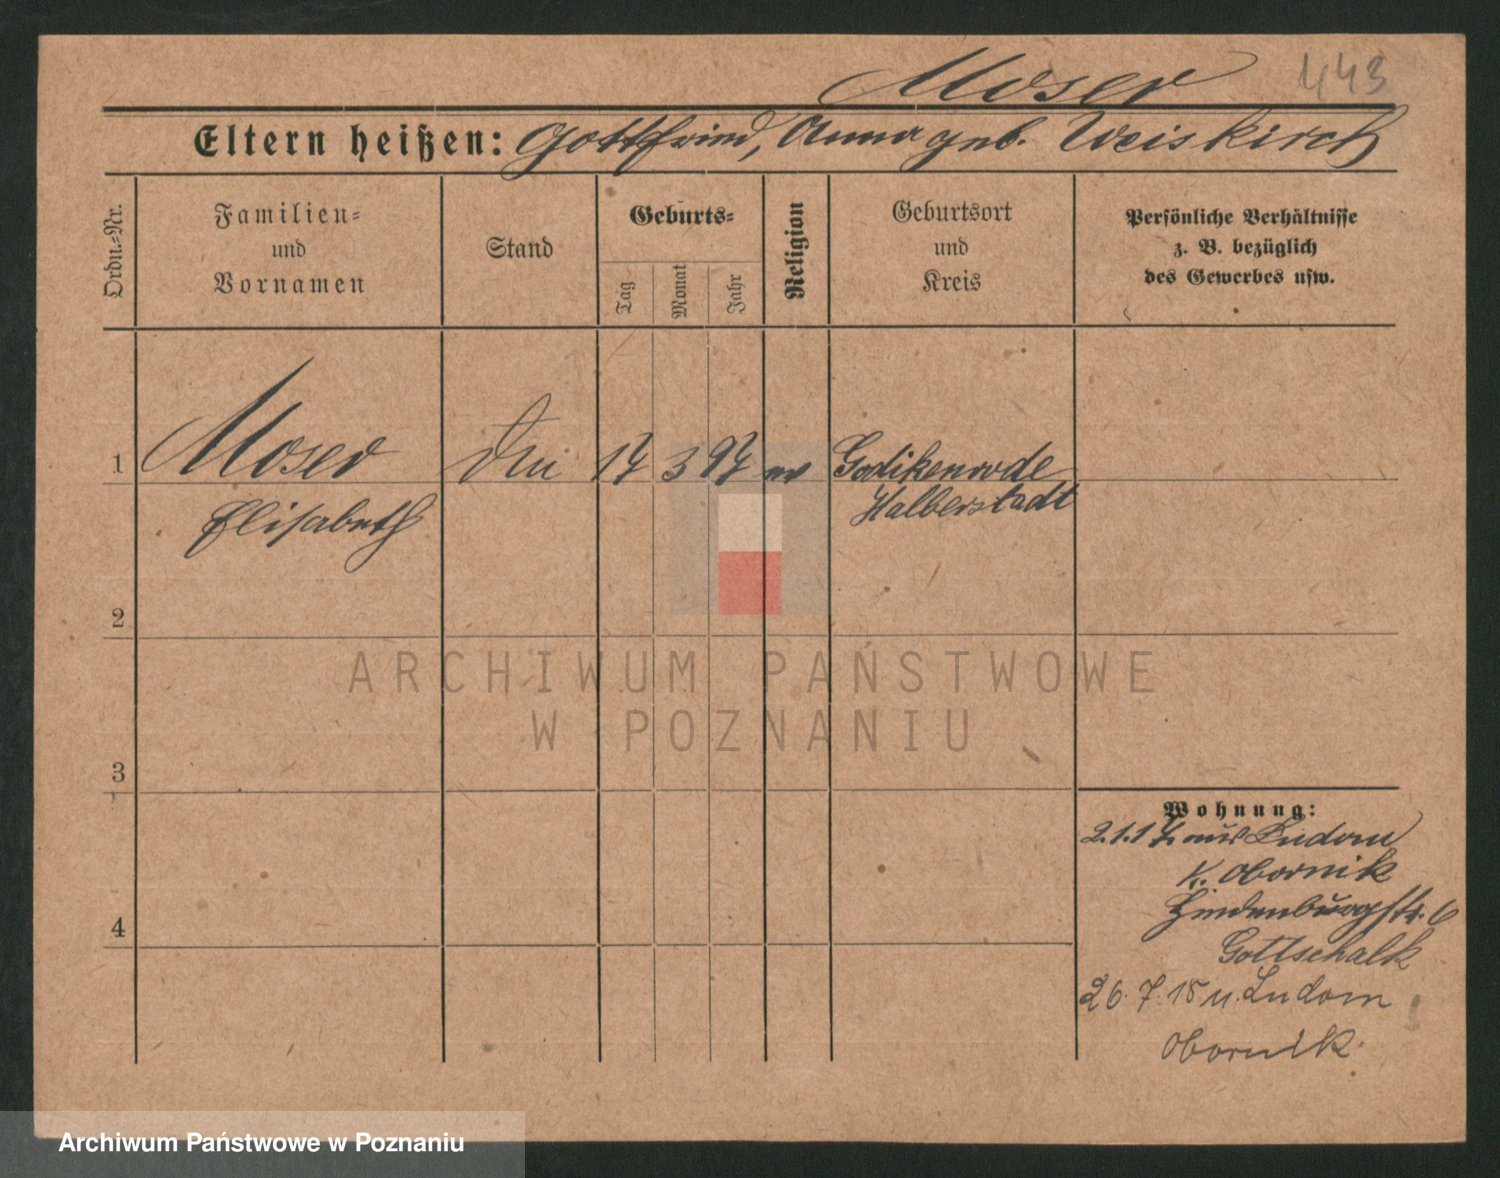 Moser 443
Eltern heißen: Gottfried, Anna geb. Weiskirch
Ordn.-Nr.
Familien-
und
Vornamen
Stand
Geburts-
Tag
Monat
Jahr
Religion
Geburtsort
und
Kreis
Persönliche Verhältnisse
z. B. bezüglich
des Gewerbes usw.
1 Moser 3 ev
Elisabeth
Halberstadt
2
3
4
ARCHIWUM PAŃSTWOWE
W POZNANIU
Wohnung:
2.1.1 aus Ludom
K. Obornik
Hindenburgstr. 6
Gottschalk
26.7.15 n. Ludom
Obornik.
Archiwum Państwowe w Poznaniu